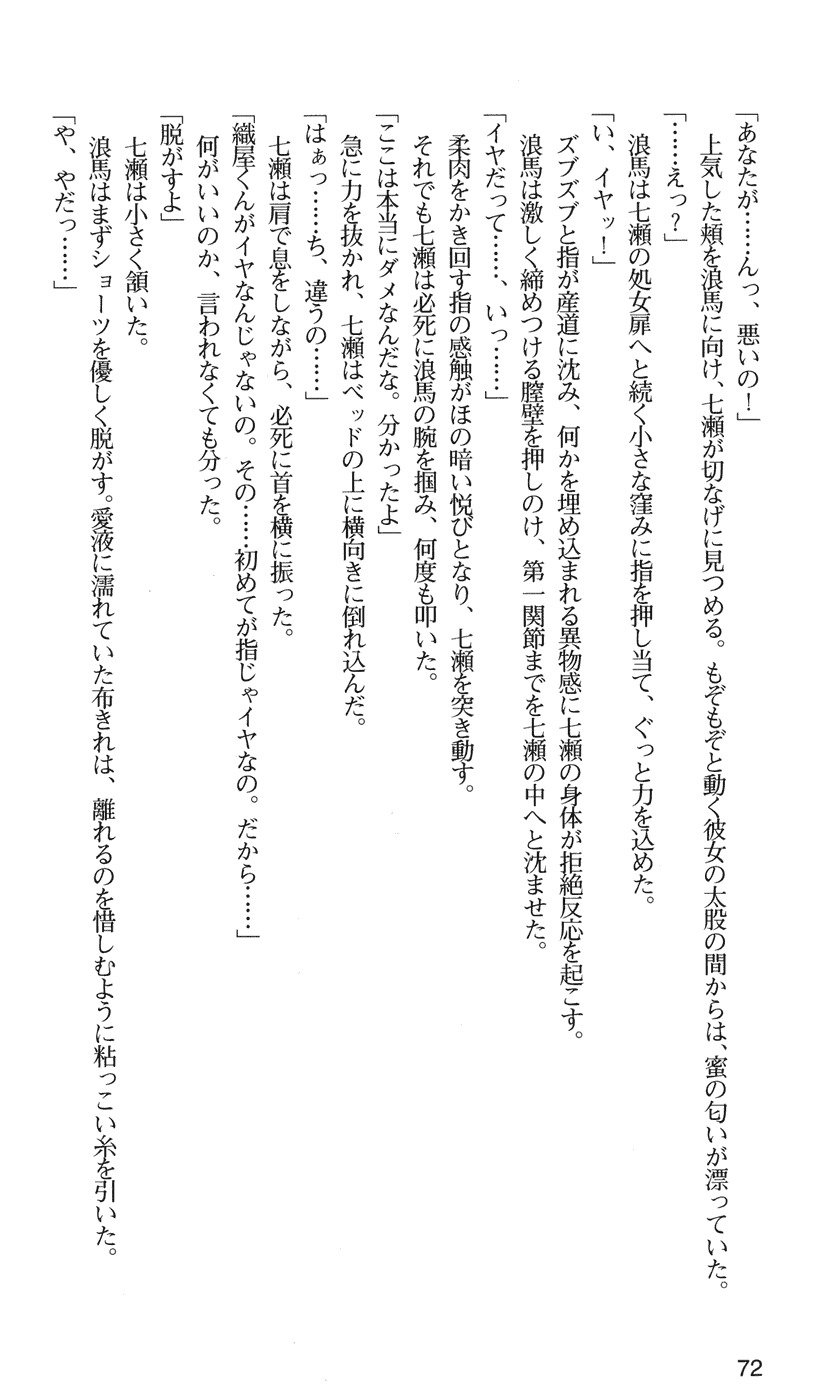 「あなたが……んっ、悪いの！」
上気した頬を浪馬に向け、七瀬が切なげに見つめる。もぞもぞと動く彼女の太股の間からは、蜜の匂いが漂っていた。
「……えっ？」
浪馬は七瀬の処女扉へと続く小さな窪みに指を押し当て、ぐっと力を込めた。
「い、イヤッ！」
ズブズブと指が産道に沈み、何かを埋め込まれる異物感に七瀬の身体が拒絶反応を起こす。
浪馬は激しく締めつける膣壁を押しのけ、第一関節までを七瀬の中へと沈ませた。
「イヤだって……、いっ……」
柔肉をかき回す指の感触がほの暗い悦びとなり、七瀬を突き動す。
それでも七瀬は必死に浪馬の腕を掴み、何度も叩いた。
「ここは本当にダメなんだな。分かったよ」
急に力を抜かれ、七瀬はベッドの上に横向きに倒れ込んだ。
「はぁっ……ち、違うの……」
七瀬は肩で息をしながら、必死に首を横に振った。
「織屋くんがイヤなんじゃないの。その……初めてが指じゃイヤなの。だから……」
何がいいのか、言われなくても分った。
「脱がすよ」
七瀬は小さく頷いた。
浪馬はまずショーツを優しく脱がす。愛液に濡れていた布きれは、離れるのを惜しむように粘っこい糸を引いた。
「や、やだっ……」
72